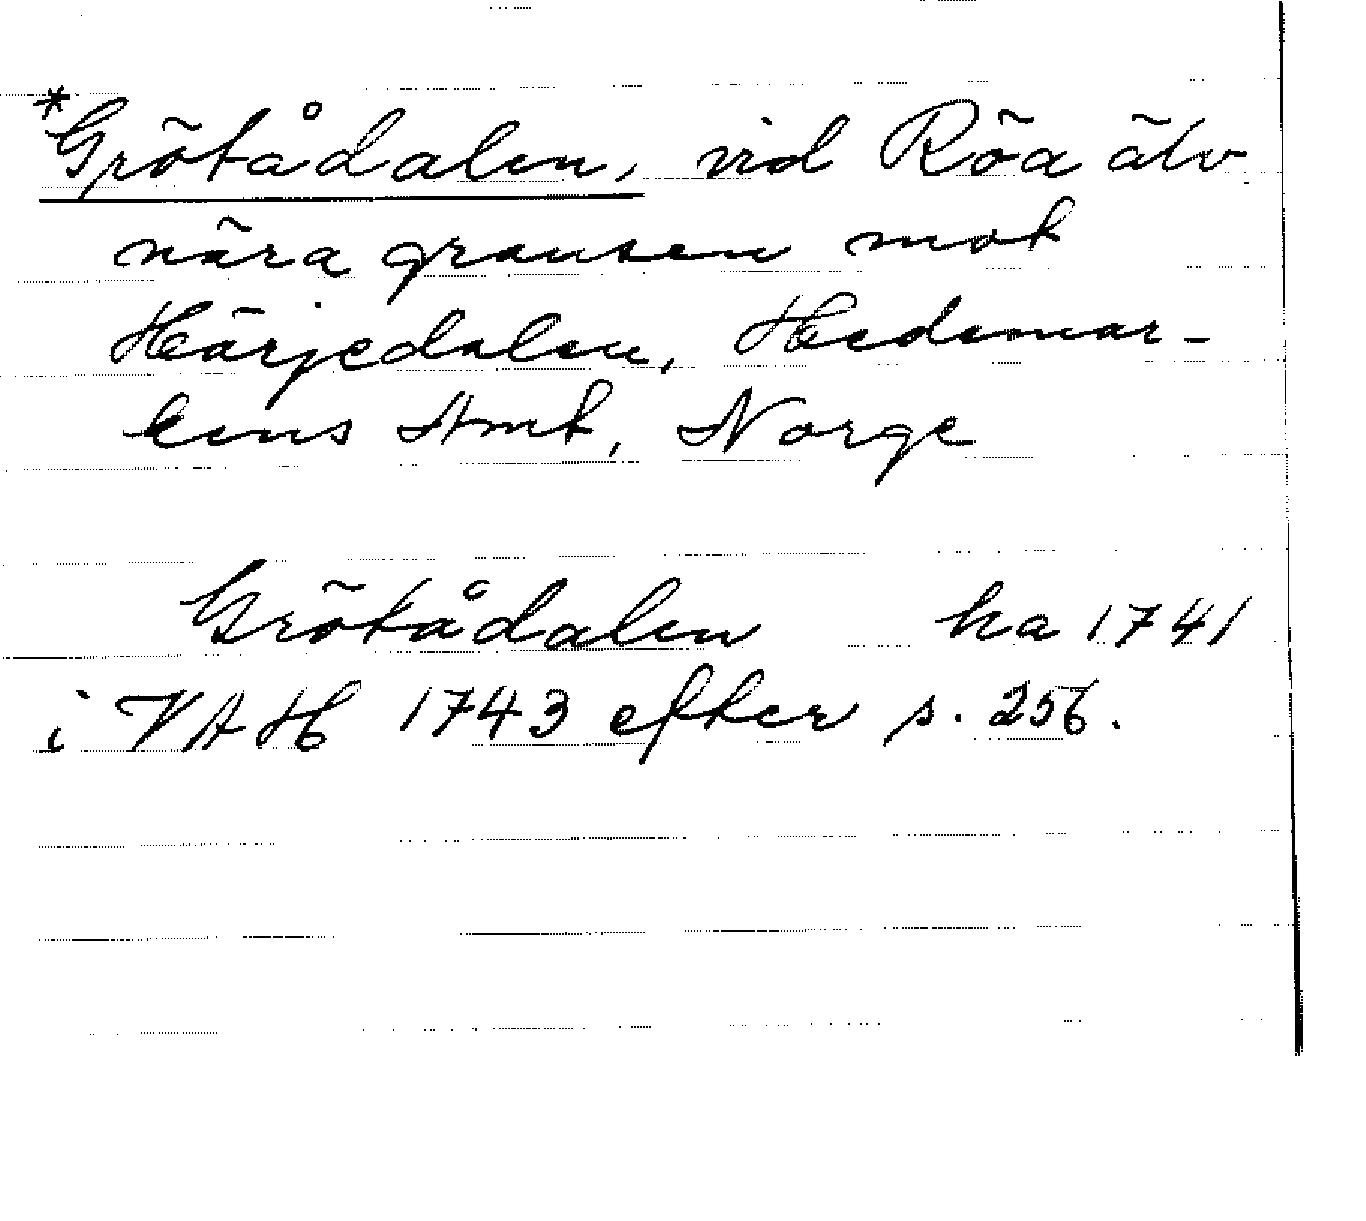 *Grötådalen, vid Röa älv
nära gransen mot
Härjedalen, Hedemar-
kens Amt, Norge
Grötådalen ka 1741
i VAH 1743 efter s. 256.